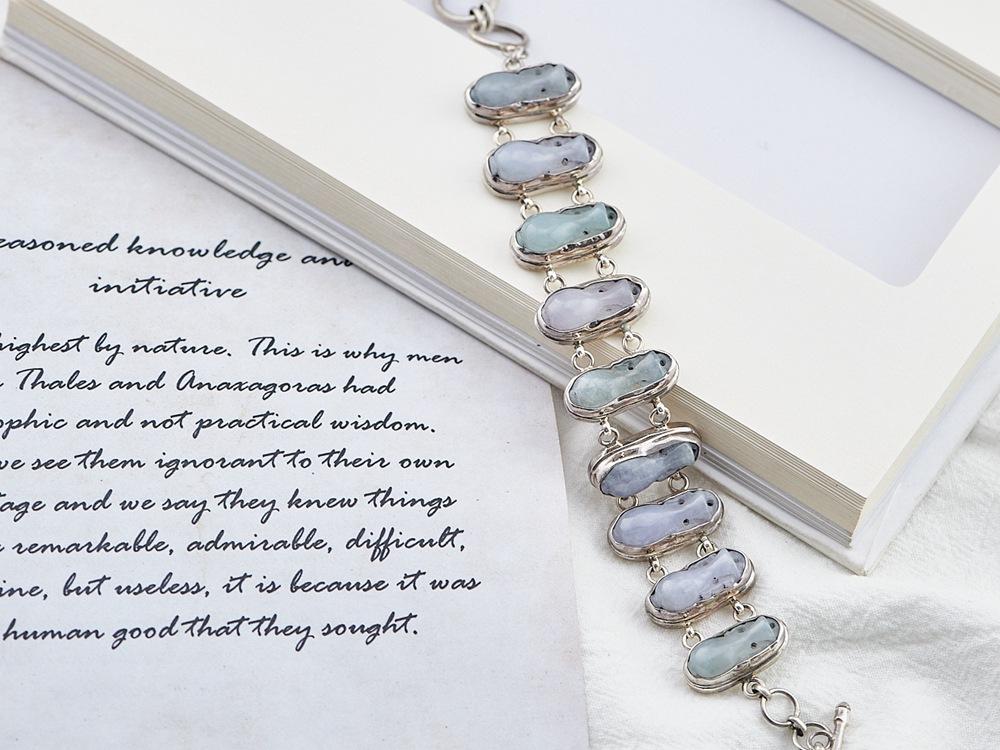 easoned knowledge and
initiative
highest by nature. This is why men
Thales and Anaxagoras had
ophic and not practical wisdom.
we see them ignorant to their own
tage and we say they knew things
remarkable, admirable, difficult,
ine, but useless, it is because it was
human good that they sought.